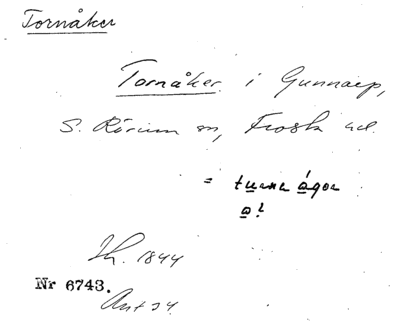 Tornåker
Tornåker i Gunnarp,
S. Rörum sn, Frosta hd.
= turna ågor
a!
Lh. 1844
Nr 6743.
Ant 34